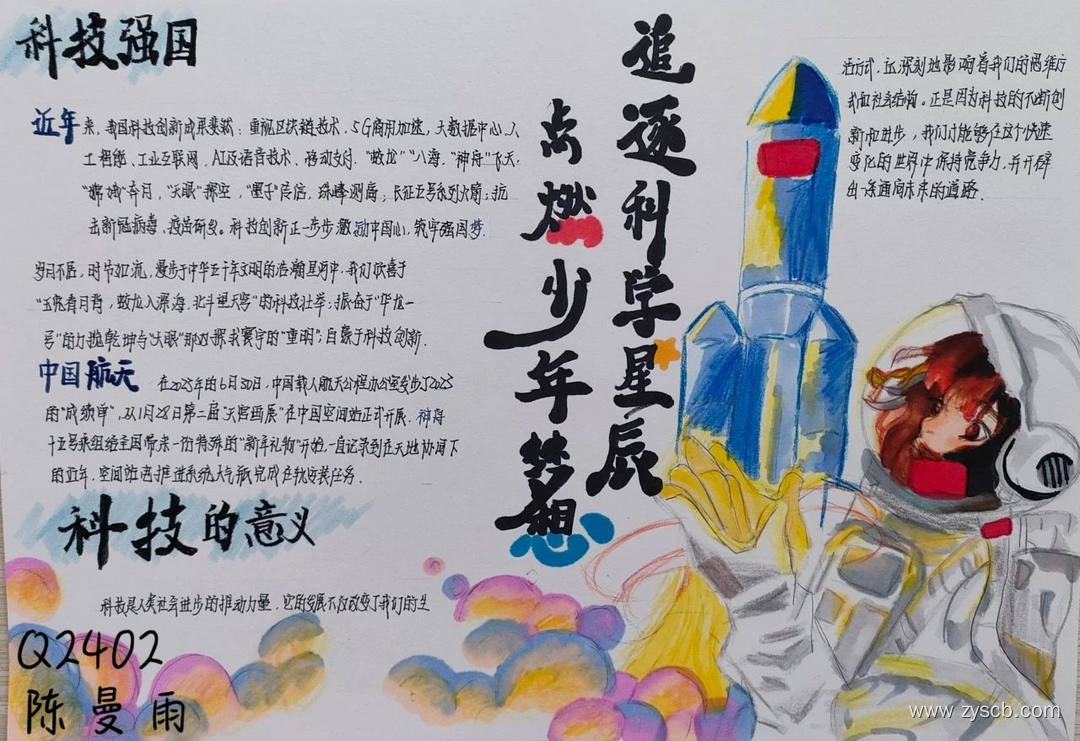 科技强国
近年来,我国科技创新成果累累:重视区块链技术,5G商用加速,大数据中心,人
工智能、工业互联网,AI及语音技术、移动支付."蛟龙"入海,"神舟"飞天,
"嫦娥"奔月,"天眼"探空,"墨子"传信,珠峰测高;长征五号系列火箭;抗
击新冠病毒、疫苗研发。科技创新正一步步激励中国心,筑牢强国梦.
岁月不居,时节如流,漫步于中华五千年文明的浩瀚星河中,我们欣喜于
"五龙骨月背,蛟龙入深海,北斗望天宫"的科技壮举;振奋于"华龙一
号"的力挽乾坤与"天眼"那双探我寰宇的"重明";自豪于科技创新.
中国航天
在2023年的6月30日,中国载人航天工程办公室发布了2023
的"成绩单",从1月28日第二届"天宫画展"在中国空间站正式开展,神舟
十五号乘组给全国带来一份特殊的"新年礼物"开始,一直记录到在天地协同下
的近年,空间站
推进系统
气瓶完成在轨安装任务.
科技的意义
科技是人类社会进步的推动力量,它的发展不仅改变了我们的生
追逐科学星辰
点燃少年梦想
活方式,还深刻地影响着我们的思维方
式和社会结构。正是因为科技的不断创
新和进步,我们才能够在这个快速
变化的世界中保持竞争力,并开辟
出一条通向未来的道路.
Q2402
陈曼雨
www.zyscb.com